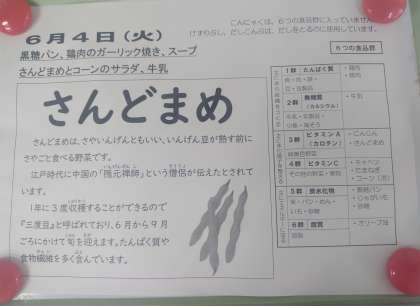 ６月４日（火）
黒糖パン、鶏肉のガーリック焼き、スープ
さんどまめとコーンのサラダ、牛乳
こんにゃくは、６つの食品群に入っていません。
けずりぶし、だしこんぶは、だしをとるのに使用しています。
６つの食品群
さんどまめ
さんどまめは、さやいんげんともいい、いんげん豆が熟す前に
さやごと食べる野菜です。
江戸時代に中国の「隠元禅師」という僧侶が伝えたとされて
います。
１年に３度収穫することができるので
『三度豆』と呼ばれており、６月から９月
ごろにかけて旬を迎えます。たんぱく質や
食物繊維を多く含んでいます。
１群 たんぱく質
２群 無機質
（カルシウム）
・牛乳
３群 ビタミンＡ
（カロテン）
・にんじん
・さんどまめ
緑黄色野菜
４群 ビタミンＣ
その他の野菜・果物
・キャベツ
・たまねぎ
・コーン
５群 炭水化物
米・パン・めん・
いも・砂糖
・黒糖パン
・じゃがいも
・砂糖
６群 脂質
油脂
・オリーブ油